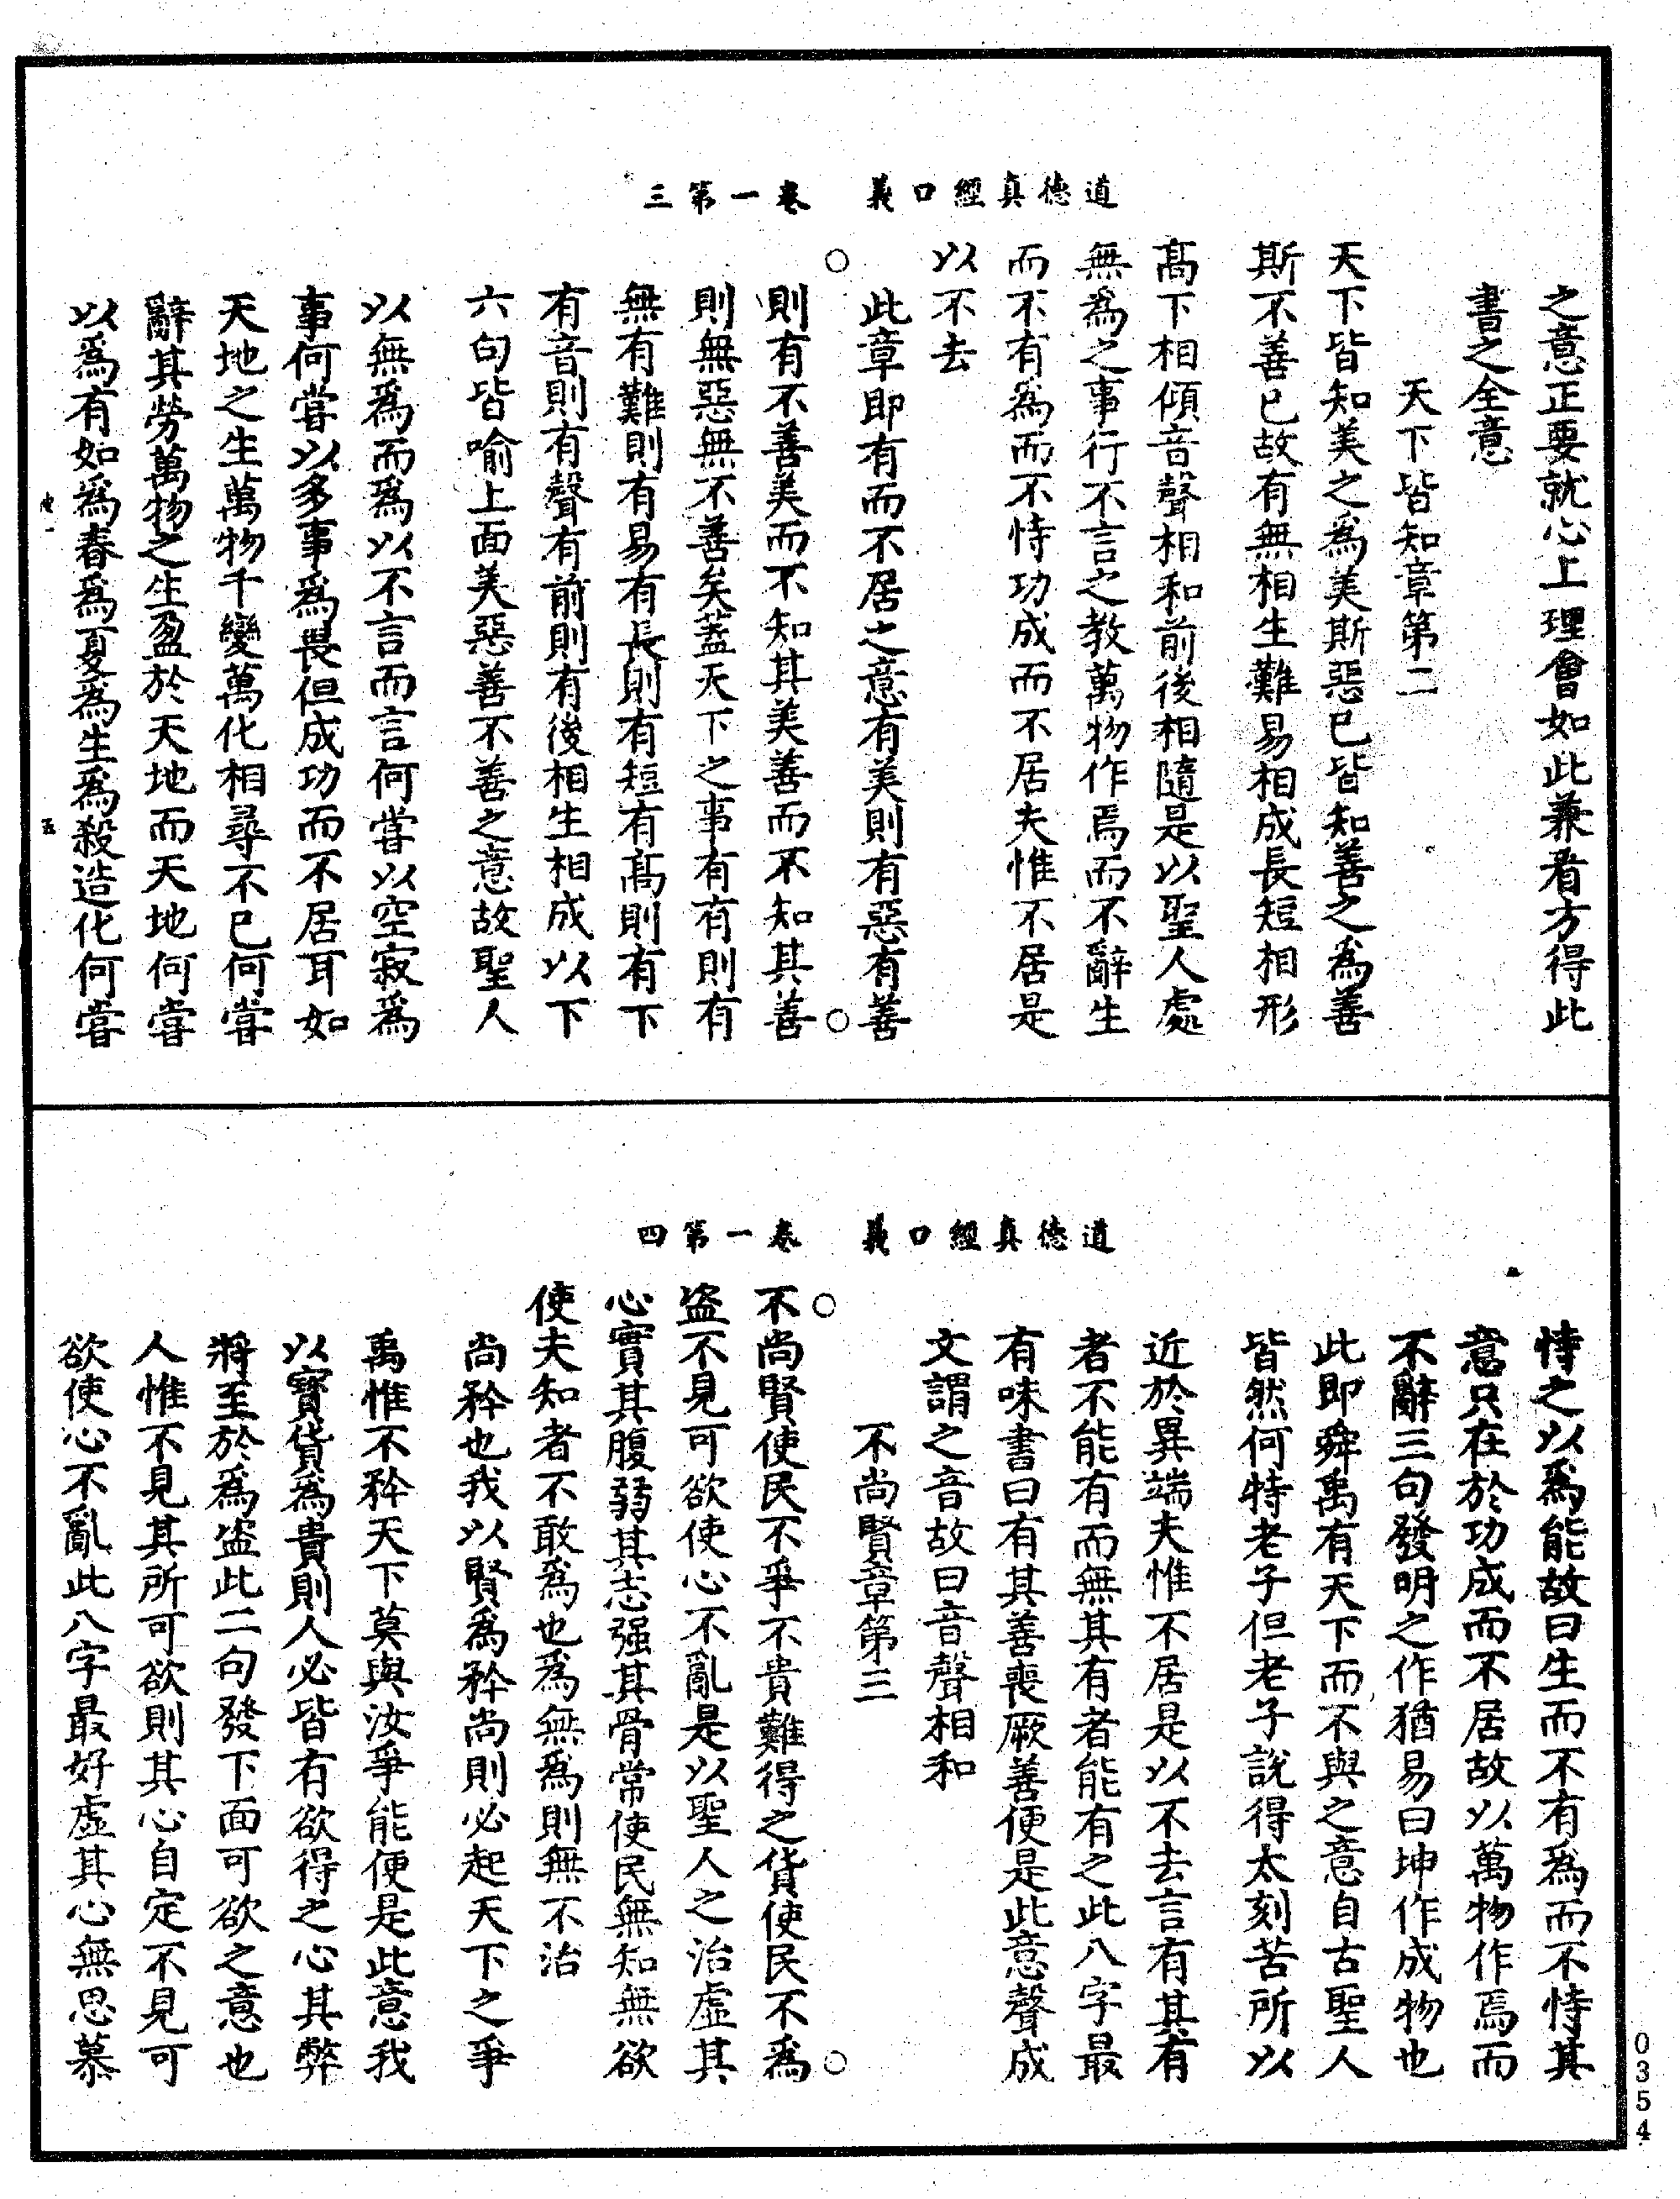 道德真經口義　卷一第三
之意正要就心上理會如此兼看方得此
書之全意
天下皆知章第二
天下皆知美之為美斯惡已皆知善之為善
斯不善已故有無相生難易相成長短相形
高下相傾音聲相和前後相隨是以聖人處
無為之事行不言之教萬物作焉而不辭生
而不有為而不恃功成而不居夫惟不居是
以不去
此章即有而不居之意有美則有惡有善
則有不善美而不知其美善而不知其善
則無惡無不善矣蓋天下之事有有則有
無有難則有易有長則有短有高則有下
有音則有聲有前則有後相生相成以下
六句皆喻上面美惡善不善之意故聖人
以無為而為以不言而言何嘗以空寂為
事何嘗以多事為畏但成功而不居耳如
天地之生萬物千變萬化相尋不已何嘗
辭其勞萬物之生盈於天地而天地何嘗
以為有如為春為夏為生為殺造化何嘗
五
道德真經口義　卷一第四
恃之以為能故曰生而不有為而不恃其
意只在於功成而不居故以萬物作焉而
不辭三句發明之作猶易曰坤作成物也
此即舜禹有天下而不與之意自古聖人
皆然何特老子但老子說得太刻苦所以
近於異端夫惟不居是以不去言有其有
者不能有而無其有者能有之此八字最
有味書曰有其善喪厥善便是此意聲成
文謂之音故曰音聲相和
不尚賢章第三
不尚賢使民不爭不貴難得之貨使民不為
盜不見可欲使心不亂是以聖人之治虛其
心實其腹弱其志强其骨常使民無知無欲
使夫知者不敢為也為無為則無不治
尚矜也我以賢為矜尚則必起天下之爭
禹惟不矜天下莫與汝爭能便是此意我
以寶貨為貴則人必皆有欲得之心其弊
將至於為盜此二句發下面可欲之意也
人惟不見其所可欲則其心自定不見可
欲使心不亂此八字最好虛其心無思慕
0354